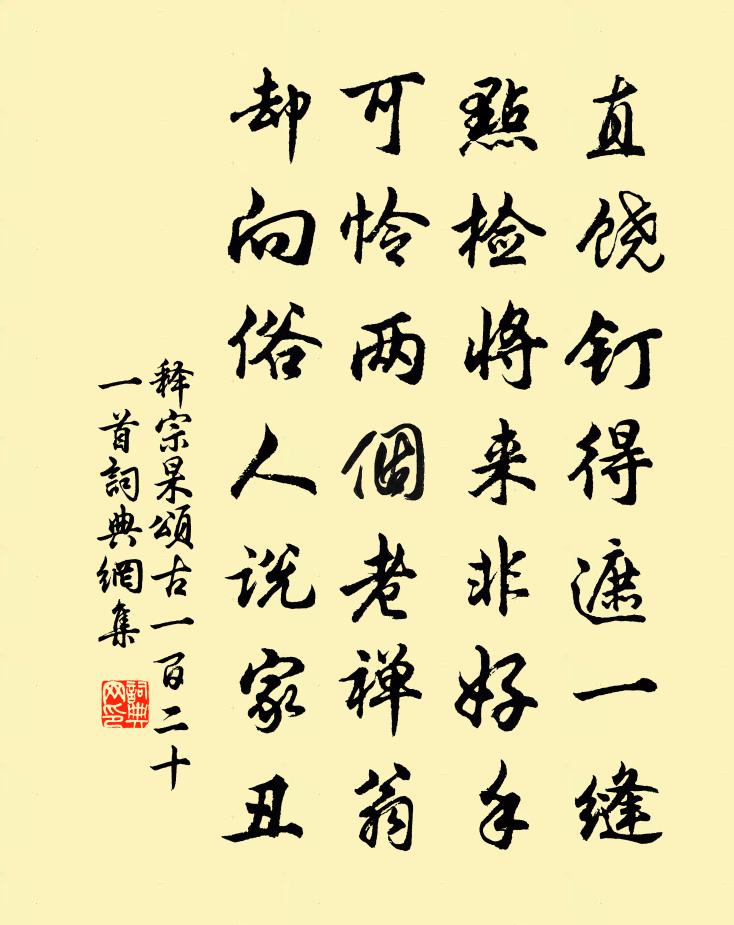 直饶钉得遮一缝
點检将来非好手
可怜两個老禅翁
却向俗人说家丑
释宗杲頌古一百二十
一首詞典網集
詞典网印